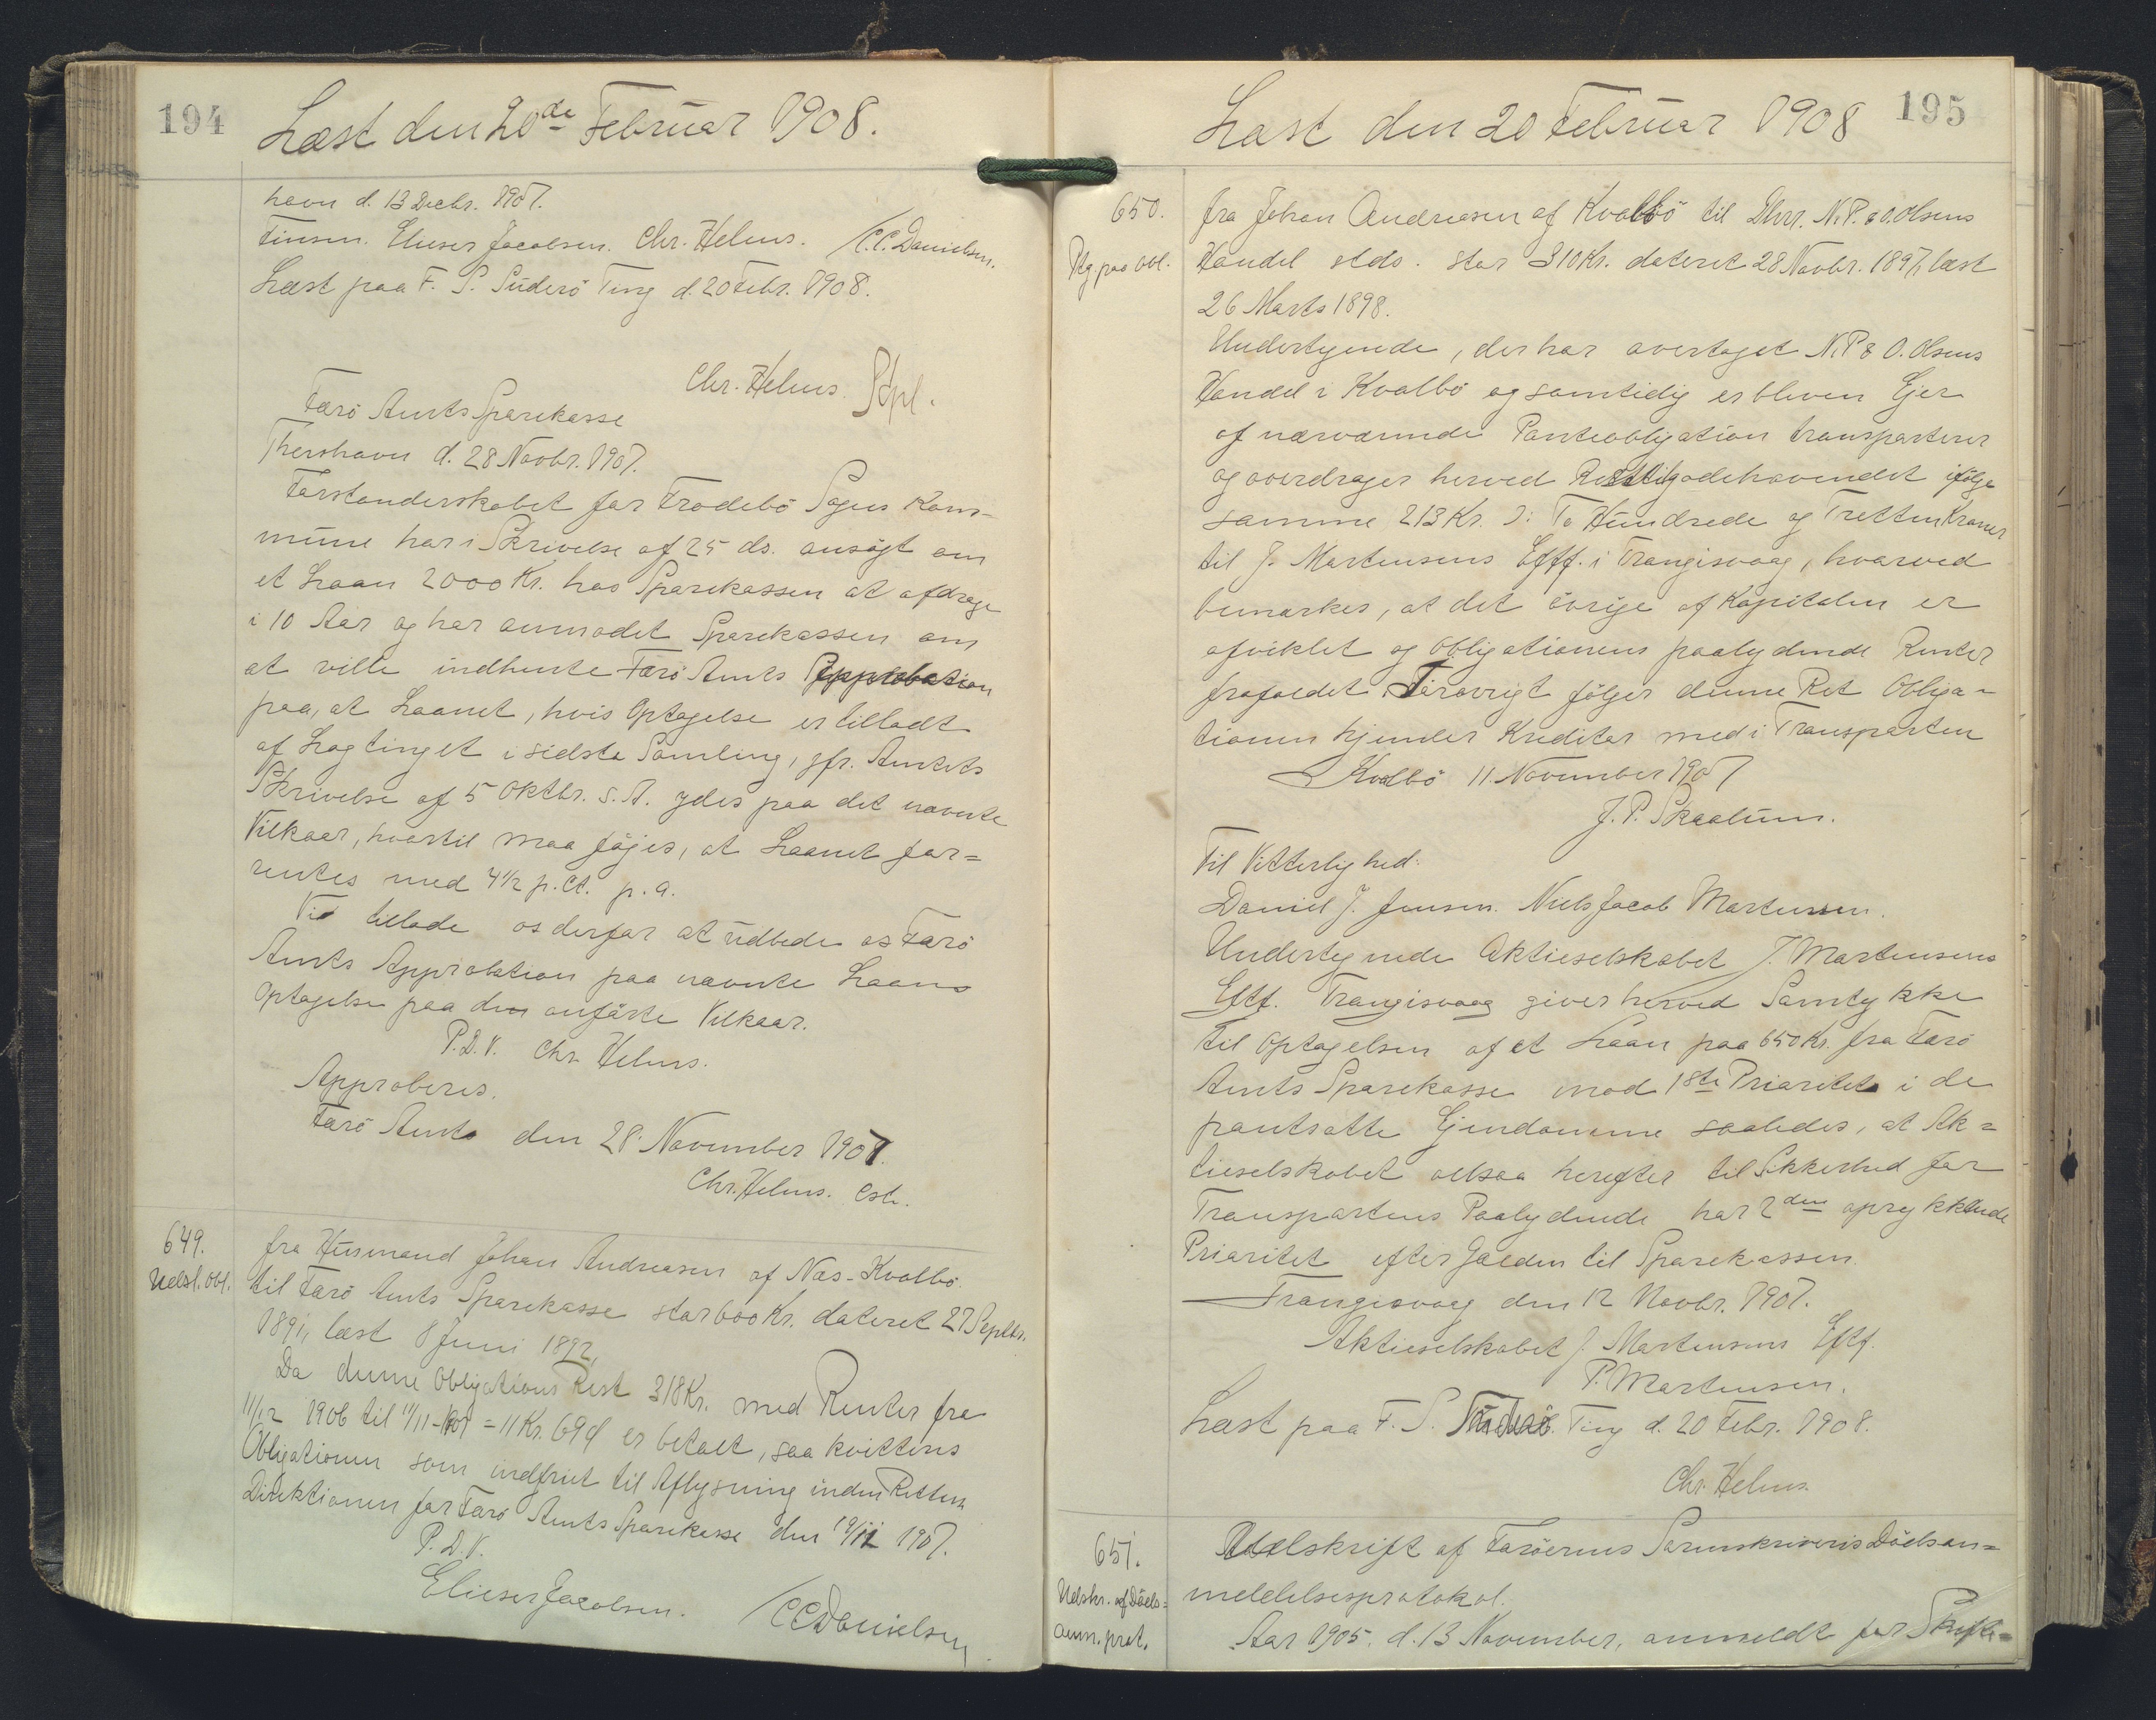 194
Læst den 20de Februar 1908.
havn d. 13 Decbr. 1907.
Finsen. Elieser Jacobsen. Chr. Helms. C.C. Danielsen.
Læst paa F. S. Suderö Ting d. 20 Febr. 1908.
Chr. Helms. Stpl.
Færö Amts Sparekasse
Thorshavn d. 28 Novbr. 1907.
Forstanderskabet for Frodebö Sogns Kom-
mune har i Skrivelse af 25 ds. ansögt om
et Laan 2000 Kr. hos Sparekassen at afdrage
i 10 Aar og har anmodet Sparekassen om
at ville indhente Færö Amts Approbation
paa, at Laanet, hvis Optagelse er tilladt
af Lagtinget i sidste Samling, jfr. Amtets
Skrivelse af 5 Oktbr. s. A. ydes paa det nævnte
Vilkaar, hvortil maa föjes, at Laanet for=
rentes med 4 1/2 p. Ct. p. a.
Vi tillade os derfor at udbede os Færö
Amts Approbation paa nævnte Laans
Optagelse paa den anförte Vilkaar.
P.D.V. Chr. Helms.
Approberes.
Færö Amt den 28 November 1907.
Chr. Helms. cst.
649.
Udsl. Obl.
fra Husmand Johan Andreasen af Næs-Kvalbö
til Færö Amts Sparekasse stor 600 Kr. dateret 27 Septbr.
1891, læst 8 Juni 1892,
Da denne Obligations Rest 318 Kr. med Renter fra
11/12 1906 til 11/11-1907 = 11 Kr. 69 d er betalt, saa kvitteres
Obligationen som indfriet til Aflysning inden Retten
Direktionen for Færö Amts Sparekasse den 19/11 1907.
P.D.V.
Elieser Jacobsen. C.C. Danielsen
195
Læst den 20 Februar 1908
650.
Ptg. paa Obl.
fra Johan Andreasen af Kvalbö til Dhrr. N.P. & O. Olsens
Handel slds. stor 310 Kr. dateret 28 Novbr. 1897, læst
26 Marts 1898.
Undertegnede, der har overtaget N.P & O. Olsens
Handel i Kvalbö og samtidig er bleven Ejer
af nærværende Panteobligation transporterer
og overdrager herved Resttilgodehavendet ifölge
samme 213 Kr. ɔ: To Hundrede og Tretten Kroner
til J. Mortensens Eftf. i Trangisvaag, hvorved
bemærkes, at det övrige af Kapitalen er
afviklet og Obligationens paalydende Renter
frafaldet. Forövrigt fölger denne Ret Obliga=
tionen hjemler Kreditor med i Transporten
Kvalbö 11. November 1907
J. P. Skaalum.
Til Vitterlighed:
Daniel J. Jensen. Niels Jacob Mortensen.
Undertegnede Aktieselskabet J. Mortensens
Eftf. Trangisvaag giver herved Samtykke
til Optagelsen af et Laan paa 650 Kr. fra Færö
Amts Sparekasse mod 1ste Prioritet i de
pantsatte Ejendomme saaledes, at Ak=
tieselskabet altsaa herefter til Sikkerhed for
Transportens Paalydende har 2den oprykkende
Prioritet efter Gælden til Sparekassen.
Trangisvaag den 12 Novbr. 1907.
Aktieselskabet J. Mortensens Eftf.
P. Mortensen.
Læst paa F. S. Suderö Ting d. 20 Febr. 1908.
Chr. Helms.
651.
Udskr. af Döds=
anm. prot.
Udskrift af Færöernes Sorenskriveris Dödsan=
meldelsesprotokol.
Aar 1905. d. 13 November, anmeldt for Skifte=